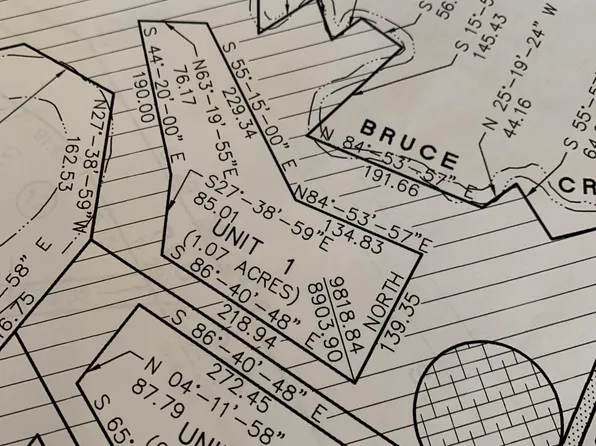 56.
S 15°-5
145.43
N 25°-19'-24" W
44.16
S 55°-5
64.
S 44°-20'-00" E
190.00
N63°-19'-55"E
76.17
S 55°-15'-00" E
229.34
BRUCE
N 84°-53'-57"E
191.66
CR
N27°-38'-59"W
162.53
S27°-38'-59"E
85.01
N84°-53'-57"E
134.83
UNIT 1
(1.07 ACRES)
S 86°-40'-48" E
218.94
9818.84
8903.90
NORTH
139.35
-58" E
6.75
S 86°-40'-48" E
272.45
N 04°-11'-58"
87.79
S 65°
UNI